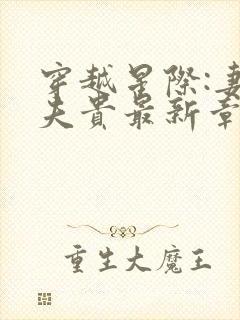 穿越星际:妻
夫贵最新章
重生大魔王